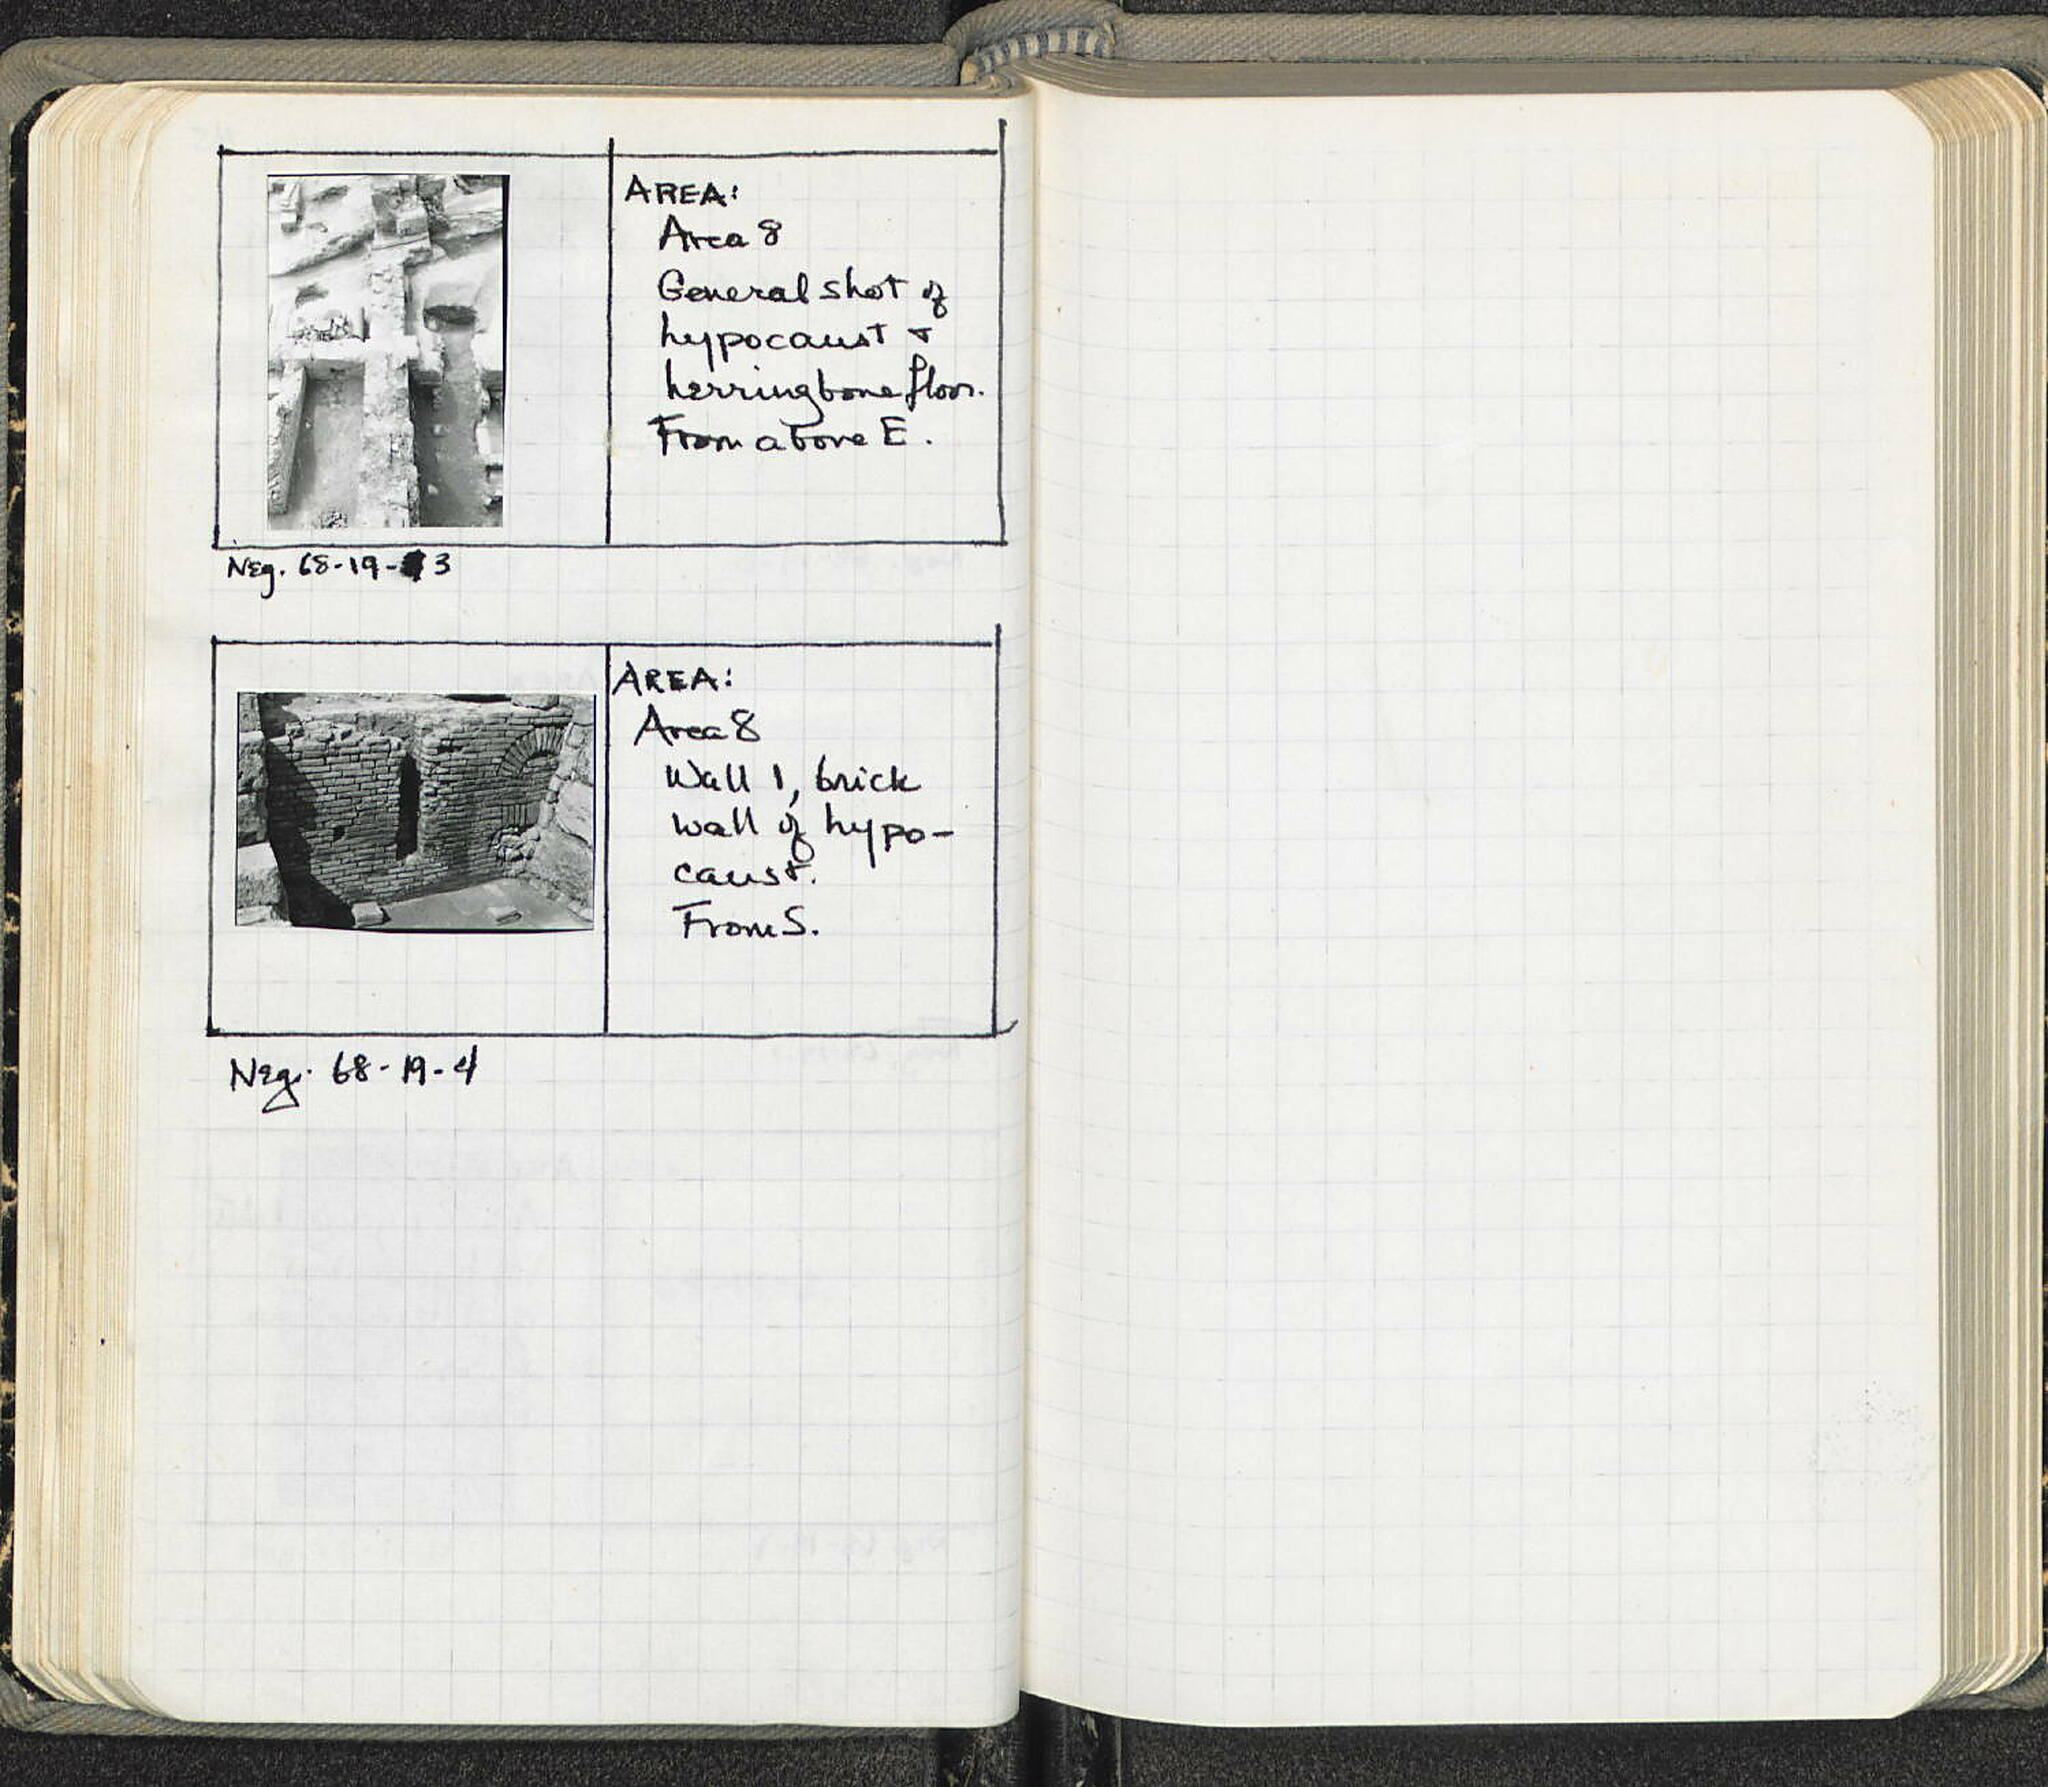 AREA:
Area 8
General shot of
hypocaust &
herringbone floor.
From above E.
Neg. 68-19-3
AREA:
Area 8
Wall 1, brick
wall of hypo-
caust.
From S.
Neg. 68-19-4